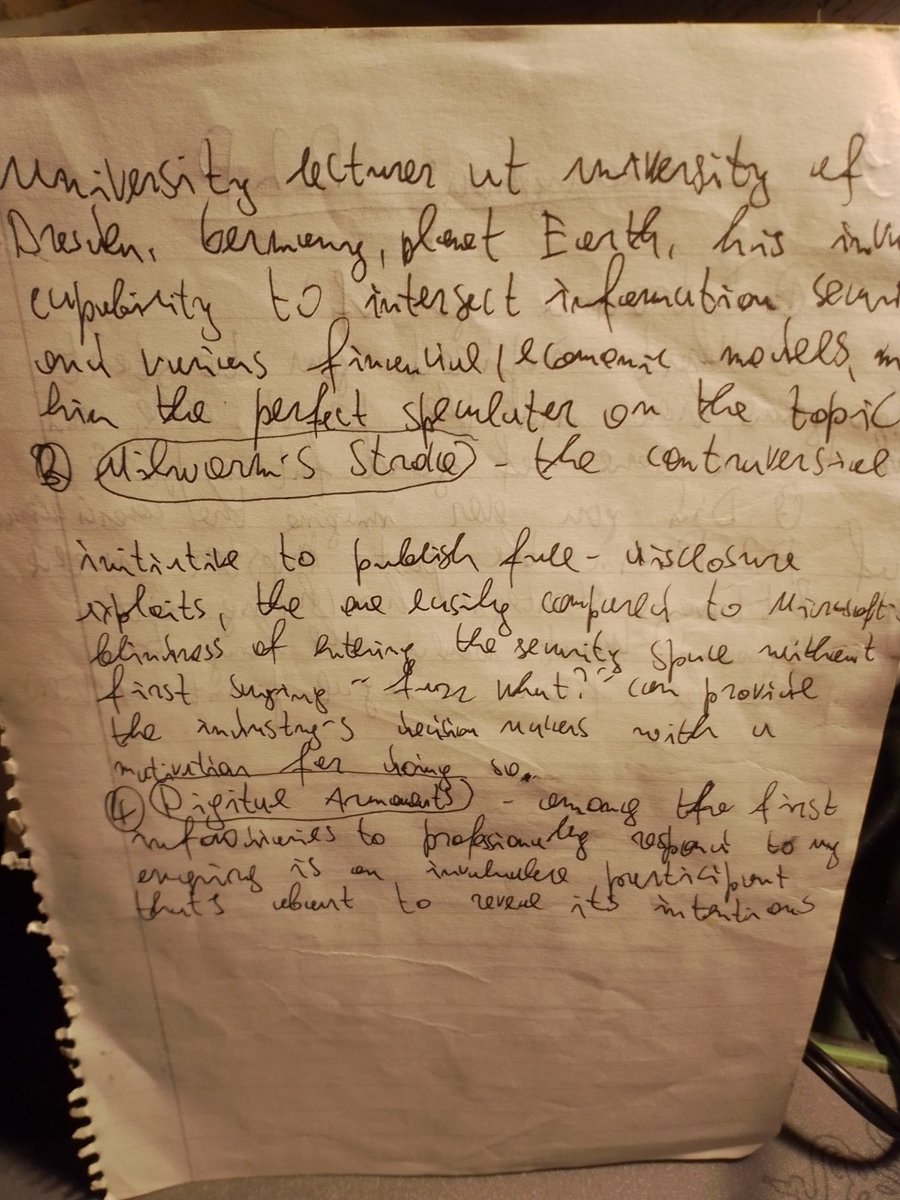 University lecturer at university of
Dresden, Germany, planet Earth, his
capability to intersect information
and various financial/economic models,
him the perfect speculator on the topic
③ Milw0rm's Str0ke - the contraversial
initiative to publish full-disclosure
exploits, the one easily compared to Microsoft
blindness of entering the security space without
first saying "fuzz what?" can provide
the industry's decision makers with a
motivation for doing so.
④ Digital Armaments - among the first
to professionally respond to my
enquiry is an participant
that's about to its intentions